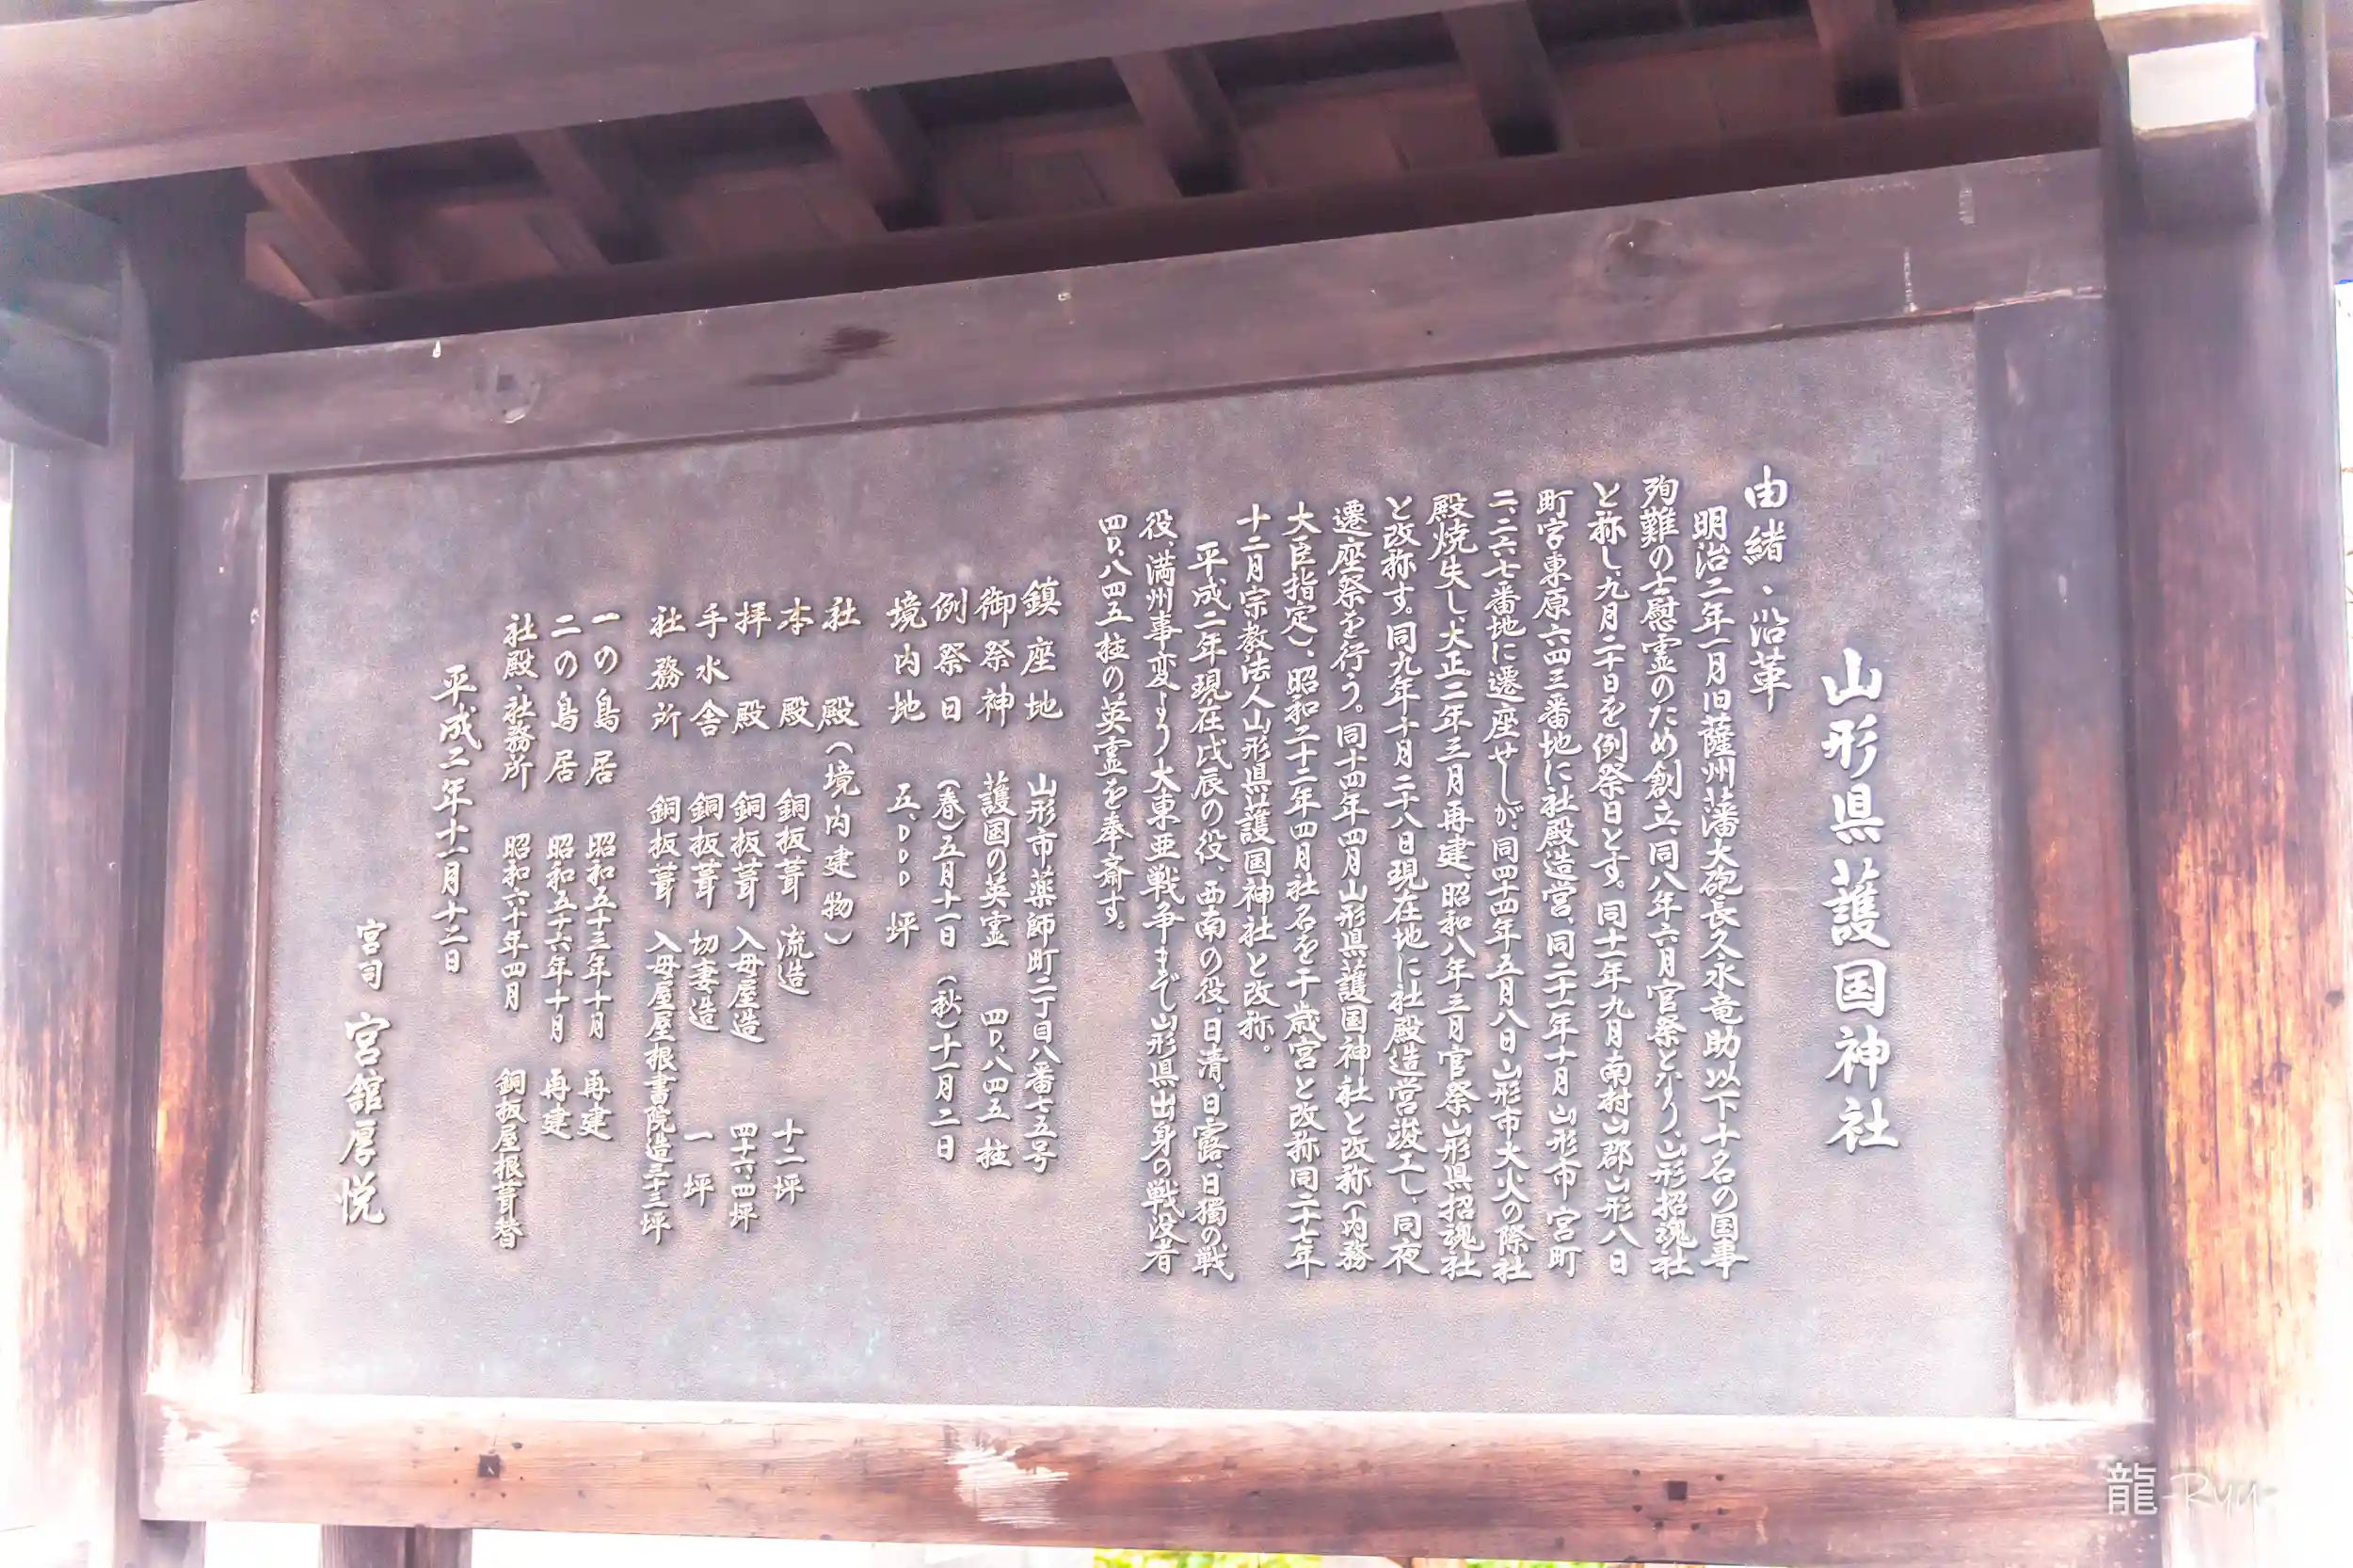 山形県護国神社
由緒・沿革
明治二年一月旧薩州藩大砲長久永竜助以下十名の国事
殉難の士慰霊のため創立、同八年六月官祭となり、山形招魂社
と称し、九月二十日を例祭日とす。同十一年九月南村山郡山形八日
町字東原六四三番地に社殿造営、同二十一年十月山形市宮町
二、二六七番地に遷座せしが、同四十四年五月八日山形市大火の際社
殿焼失し、大正二年三月再建、昭和八年三月官祭山形県招魂社
と改称す。同九年十月二十八日現在地に社殿造営竣工し、同夜
遷座祭を行う。同十四年四月山形県護国神社と改称(内務
大臣指定)、昭和二十二年四月社名を千歳宮と改称同二十七年
十二月宗教法人山形県護国神社と改称。
平成二年現在戊辰の役、西南の役、日清、日露、日獨の戦
役、満州事変より大東亜戦争まで山形県出身の戦没者
四〇、八四五柱の英霊を奉斎す。
鎮座地 山形市薬師町二丁目八番七五号
御祭神 護国の英霊 四〇、八四五柱
例祭日 (春)五月十一日 (秋)十一月二日
境内地 五、〇〇〇坪
社殿(境内建物)
本殿 銅板葺 流造 十二坪
拝殿 銅板葺 入母屋造 四十六、四坪
手水舎 銅板葺 切妻造 一坪
社務所 銅板葺 入母屋屋根書院造三十三坪
一の鳥居 昭和五十三年十月 再建
二の鳥居 昭和五十六年十月 再建
社殿、社務所 昭和六十年四月 銅板屋根葺替
平成二年十一月十二日
宮司 宮舘厚悦
龍-Ryu-